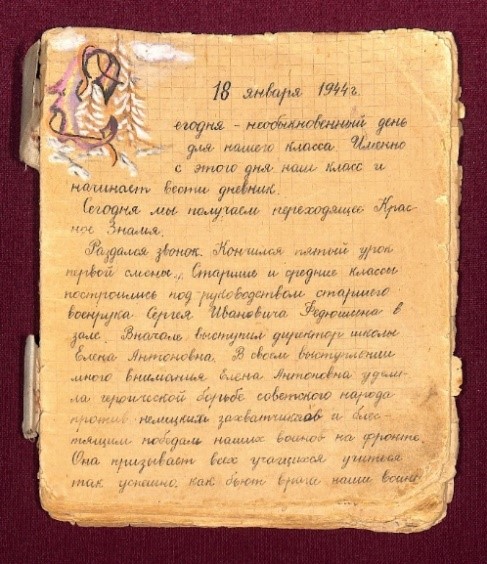 18 января 1944г.
Сегодня - необыкновенный день
для нашего класса. Именно
с этого дня наш класс и
начинает вести дневник.
Сегодня мы получаем переходящее Крас-
ное Знамя.
Раздался звонок. Кончился пятый урок
первой смены. Старшие и средние классы
построились под руководством старшего
военрука Сергея Ивановича Федюшина в
зале. Вначале выступил директор школы
Елена Антоновна. В своем выступлении
много внимания Елена Антоновна удели-
ла героической борьбе советского народа
против немецких захватчиков и блес-
тящим победам наших воинов на фронте.
Она призывает всех учащихся учиться
так успешно, как бьют врага наши воины